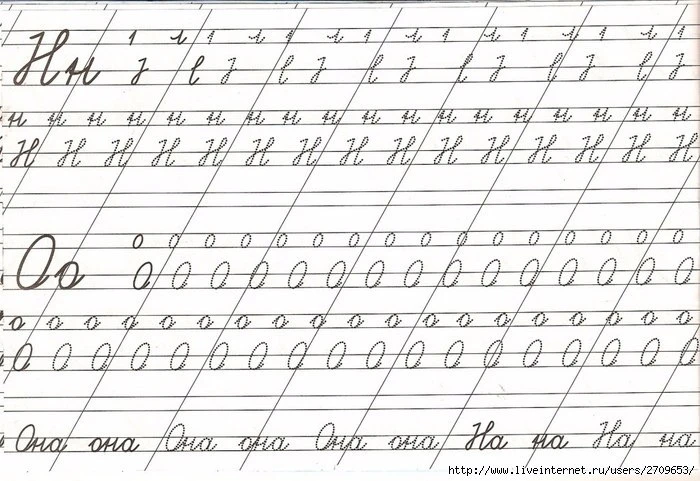 Нн
н н н н н н н н н н н н н н н н н н
Н Н Н Н Н Н Н Н Н Н Н Н Н Н Н
о о о о о о о о о о о о о о о о
Оо О О О О О О О О О О О О О О О
о о о о о о о о о о о о о о о о о о о
О О О О О О О О О О О О О О О О О О
Она она Она она Она она На на На на
http://www.liveinternet.ru/users/2709653/